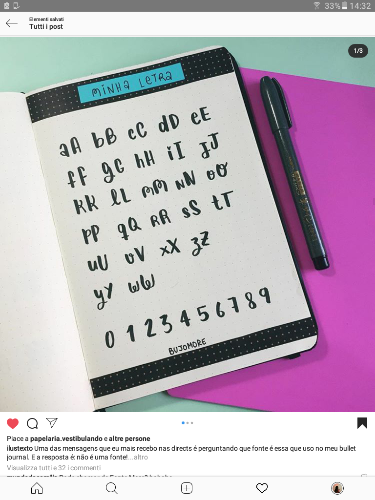 33% 14:32
Elementi salvati
Tutti i post
1/3
MINHA LETRA
aA bB cC dD eE
fF gG hH iI jJ
kK lL mM nN oO
pP qQ rR sS tT
uU vV xX zZ
yY wW
0 1 2 3 4 5 6 7 8 9
BUJOMORE
Piace a papelaria.vestibulando e altre persone
ilustexto Uma das mensagens que eu mais recebo nas directs é perguntando que fonte é essa que uso no meu bullet
journal. E a resposta é: não é uma fonte!...altro
Visualizza tutti e 32 i commenti